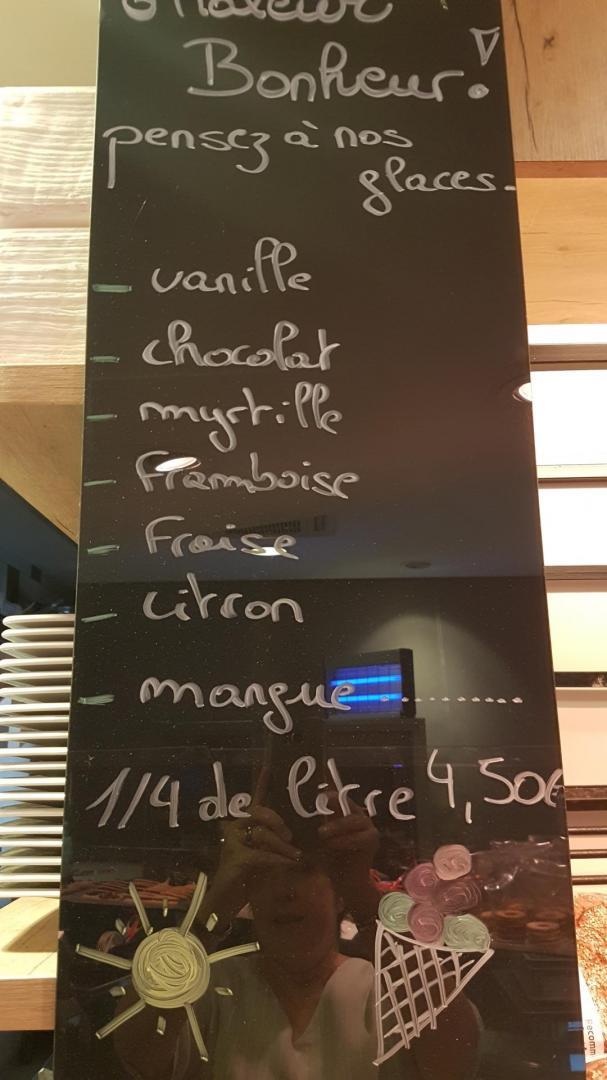 Bonheur!
pensez à nos
glaces.
- vanille
- chocolat
- myrtille
- framboise
- Fraise
- citron
- mangue..........
1/4 de litre 4,50€